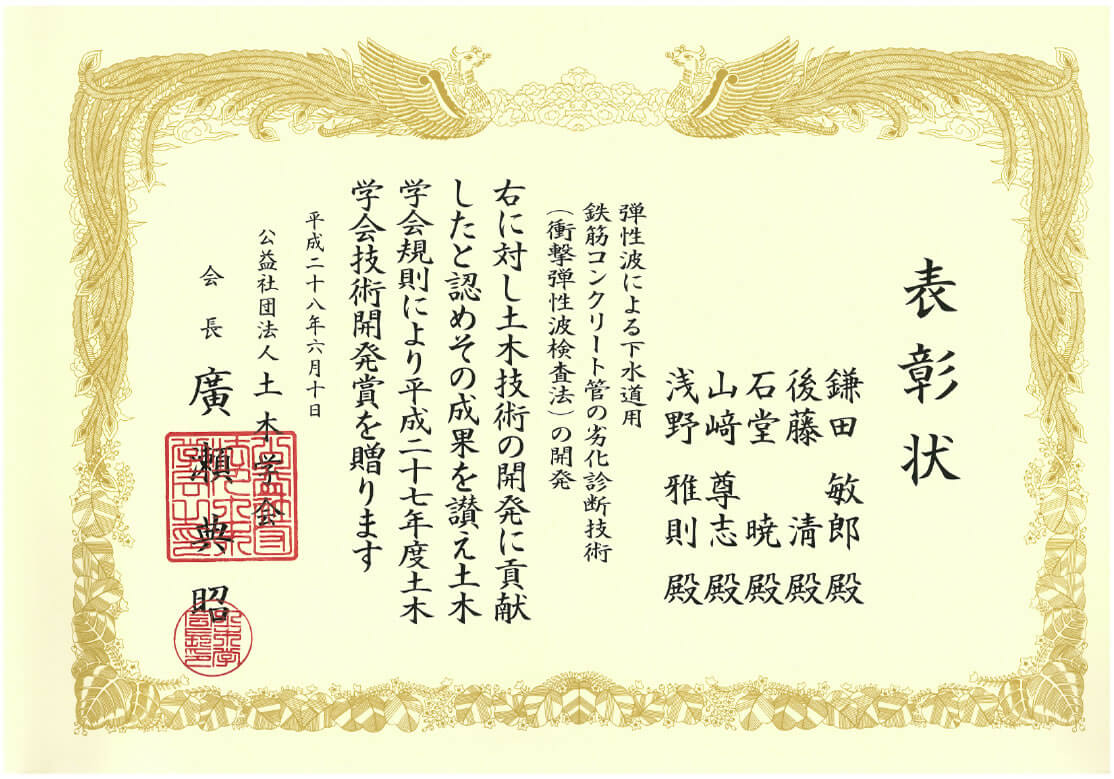 表彰状
鎌田 敏郎 殿
後藤 清 殿
石堂 暁 殿
山﨑 尊志 殿
浅野 雅則 殿
弾性波による下水道用
鉄筋コンクリート管の劣化診断技術
(衝撃弾性波検査法)の開発
右に対し土木技術の開発に貢献
したと認めその成果を讃え土木
学会規則により平成二十七年度土木
学会技術開発賞を贈ります
平成二十八年六月十日
公益社団法人 土木学会
会長 廣瀬典昭